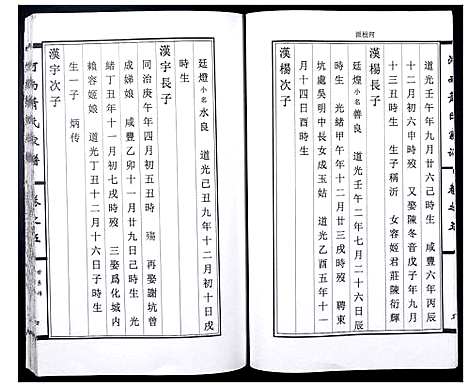 道光壬午年九月廿六己時生　咸豐六年丙辰
十二月初六申時歿　又娶陳冬音戊子年九月
十三丑時生　生子稱沂　女容姬君莊陳衍輝
漢楊長子
廷煌小名善良　道光壬午二年七月廿四日辰
時生　光緒甲午年十二月廿三戌時歿　聘東
坑處吳明中長女成玉姑　道光乙酉五年十一
月十四日酉時生
廷燈小名水良　道光己丑九年十二月初十日戌
時生
漢宇長子
同治庚午年四月初五丑時　殤　再娶謝坑曾
成娣娘　咸豐乙卯十一月廿九日己時生　光
緒丁丑年十一月初七戌時歿　三娶為化城內
賴容姬娘　道光丁丑十二月十六日子時生
生一子　炳传
漢宇次子
河西黃氏家譜
卷之五